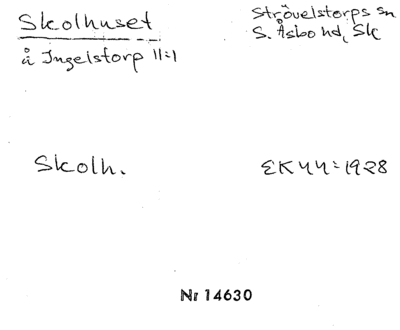 Skolhuset
å Ingelstorp 11:1
Strövelstorps sn
S. Åsbo hd, Sk
Skolh.
EK 44:1928
Nr 14630